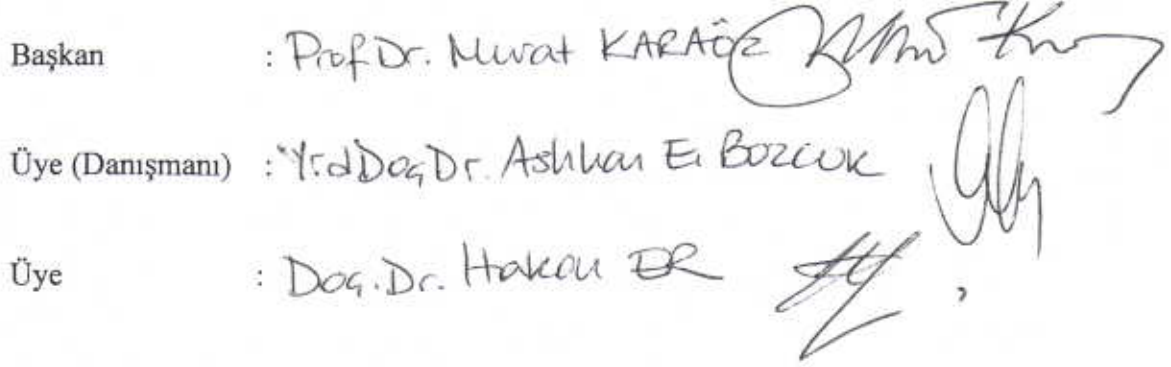 Başkan : Prof.Dr. Murat KARAÖZ
Üye (Danışmanı) : Yrd.Doç.Dr. Aslıhan E. BOZCUK
Üye : Doç.Dr. Hakan ER